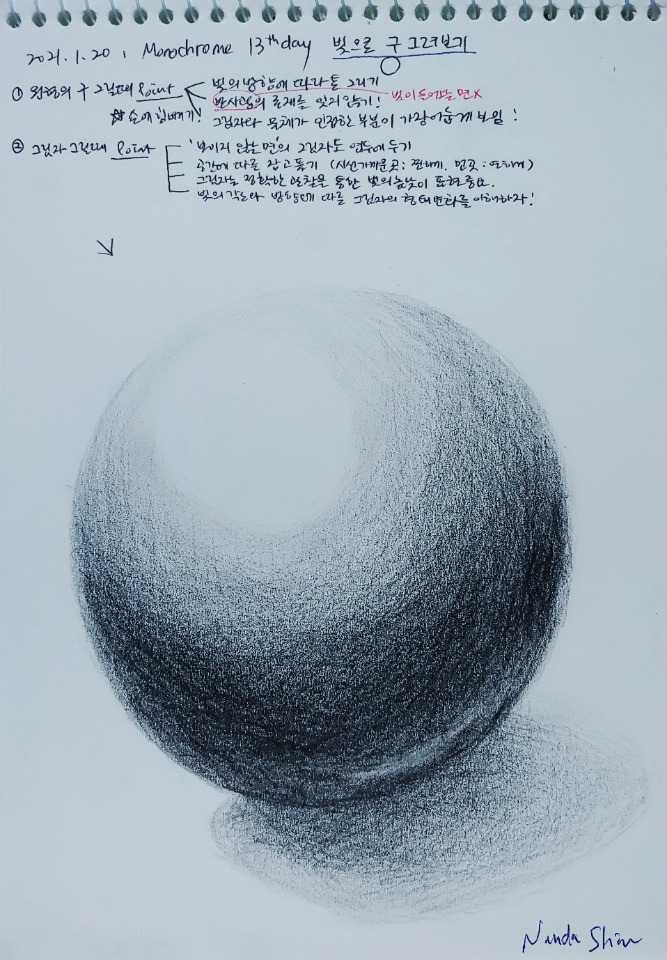 2021.1.20, Monochrome 13th day 빛으로 구 그려보기
① 원형의 구 그릴때 Point
빛의 방향에 따라 톤 그리기
반사광의 존재를 잊지 않기! 빛이 들어오는 면 X
☆ 손에 힘빼기!
그림자와 물체가 인접한 부분이 가장 어둡게 보임!
② 그림자 그릴때 Point
'보이지 않는 면'의 그림자도 염두에 두기
공간에 따를 잡고 풀기 (시선 가까운곳: 진하게, 먼곳: 연하게)
그림자는 정확한 관찰을 통한 빛의 높낮이 표현 중요.
빛의 각도와 방향에 따른 그림자의 형태변화를 이해하자!
Nanda Shin